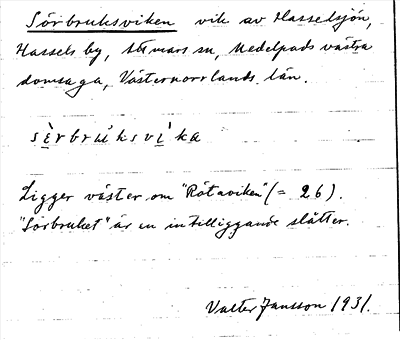 Sörbruksviken vik av Hasselsjön,
Hassels by, Attmars sn, Medelpads västra
domsaga, Västernorrlands län.
sèrbrúksvìka
Ligger väster om "Rötaviken" (= 26).
"Sörbruket" är en intilliggande slåtter.
Valter Jansson 1931.